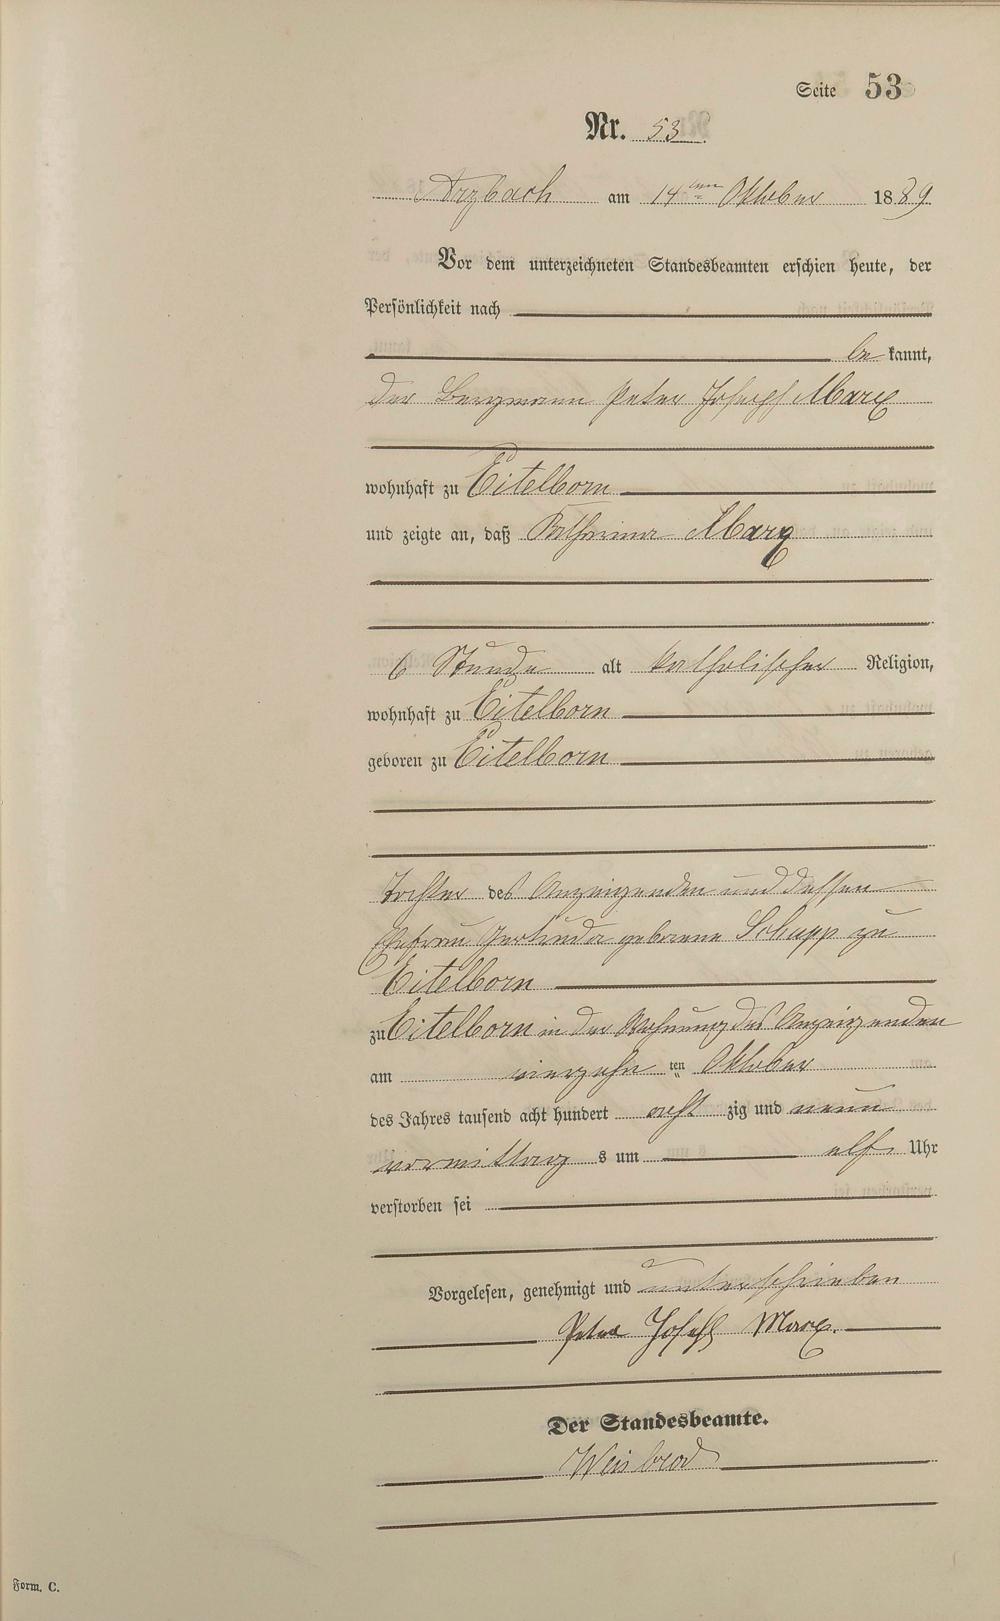 Seite 53
Nr. 53
Arzbach am 14ten Oktober 1889
Vor dem unterzeichneten Standesbeamten erschien heute, der
Persönlichkeit nach
be kannt,
der Bergmann Peter Joseph Marx
wohnhaft zu Eitelborn
und zeigte an, daß Katharina Marx
6 Stunde alt katholischer Religion,
wohnhaft zu Eitelborn
geboren zu Eitelborn
Tochter des Anzeigenden und dessen
Ehefrau Gertruda geborene Schupp zu
Eitelborn
zu Eitelborn in der Wohnung des Anzeigenden
am vierzehn ten Oktober
des Jahres tausend acht hundert acht zig und neun
vormittag s um elf Uhr
verstorben sei
Vorgelesen, genehmigt und unterschrieben
Peter Joseph Marx.
Der Standesbeamte.
Weisbrod
Form. C.